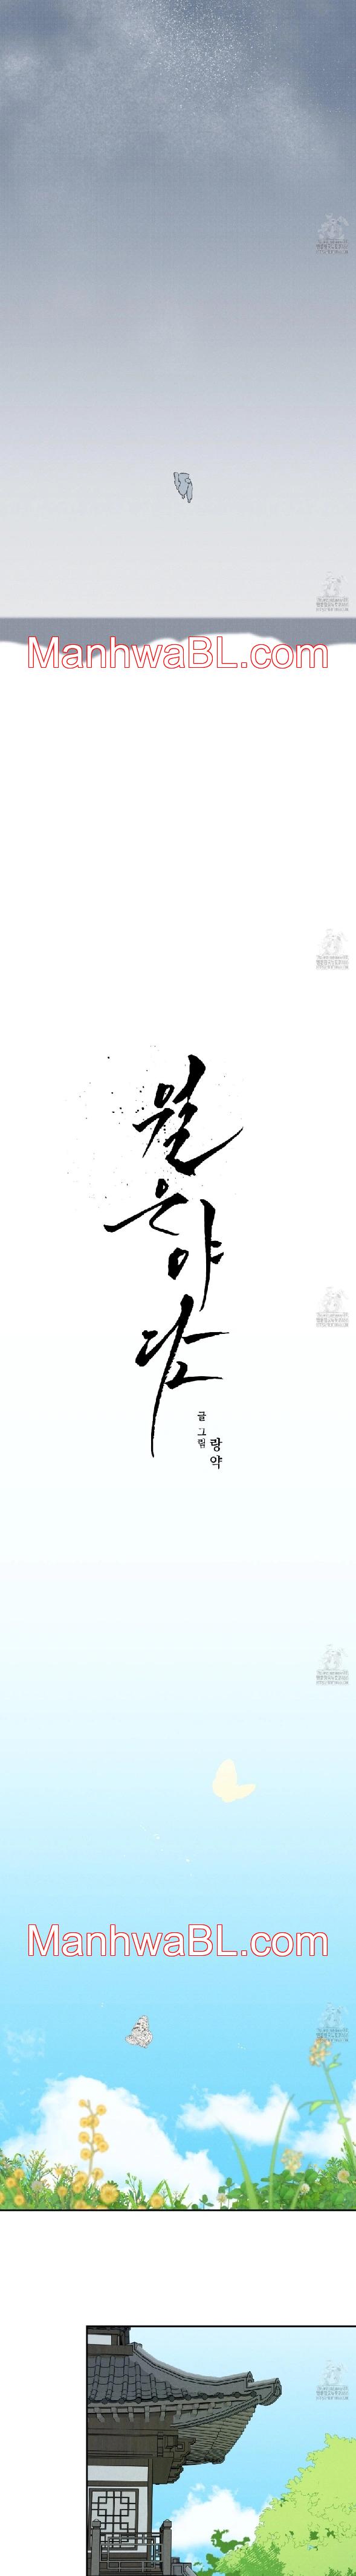 ManhwaBL.com
월
은
야
담
글 그림
랑약
ManhwaBL.com